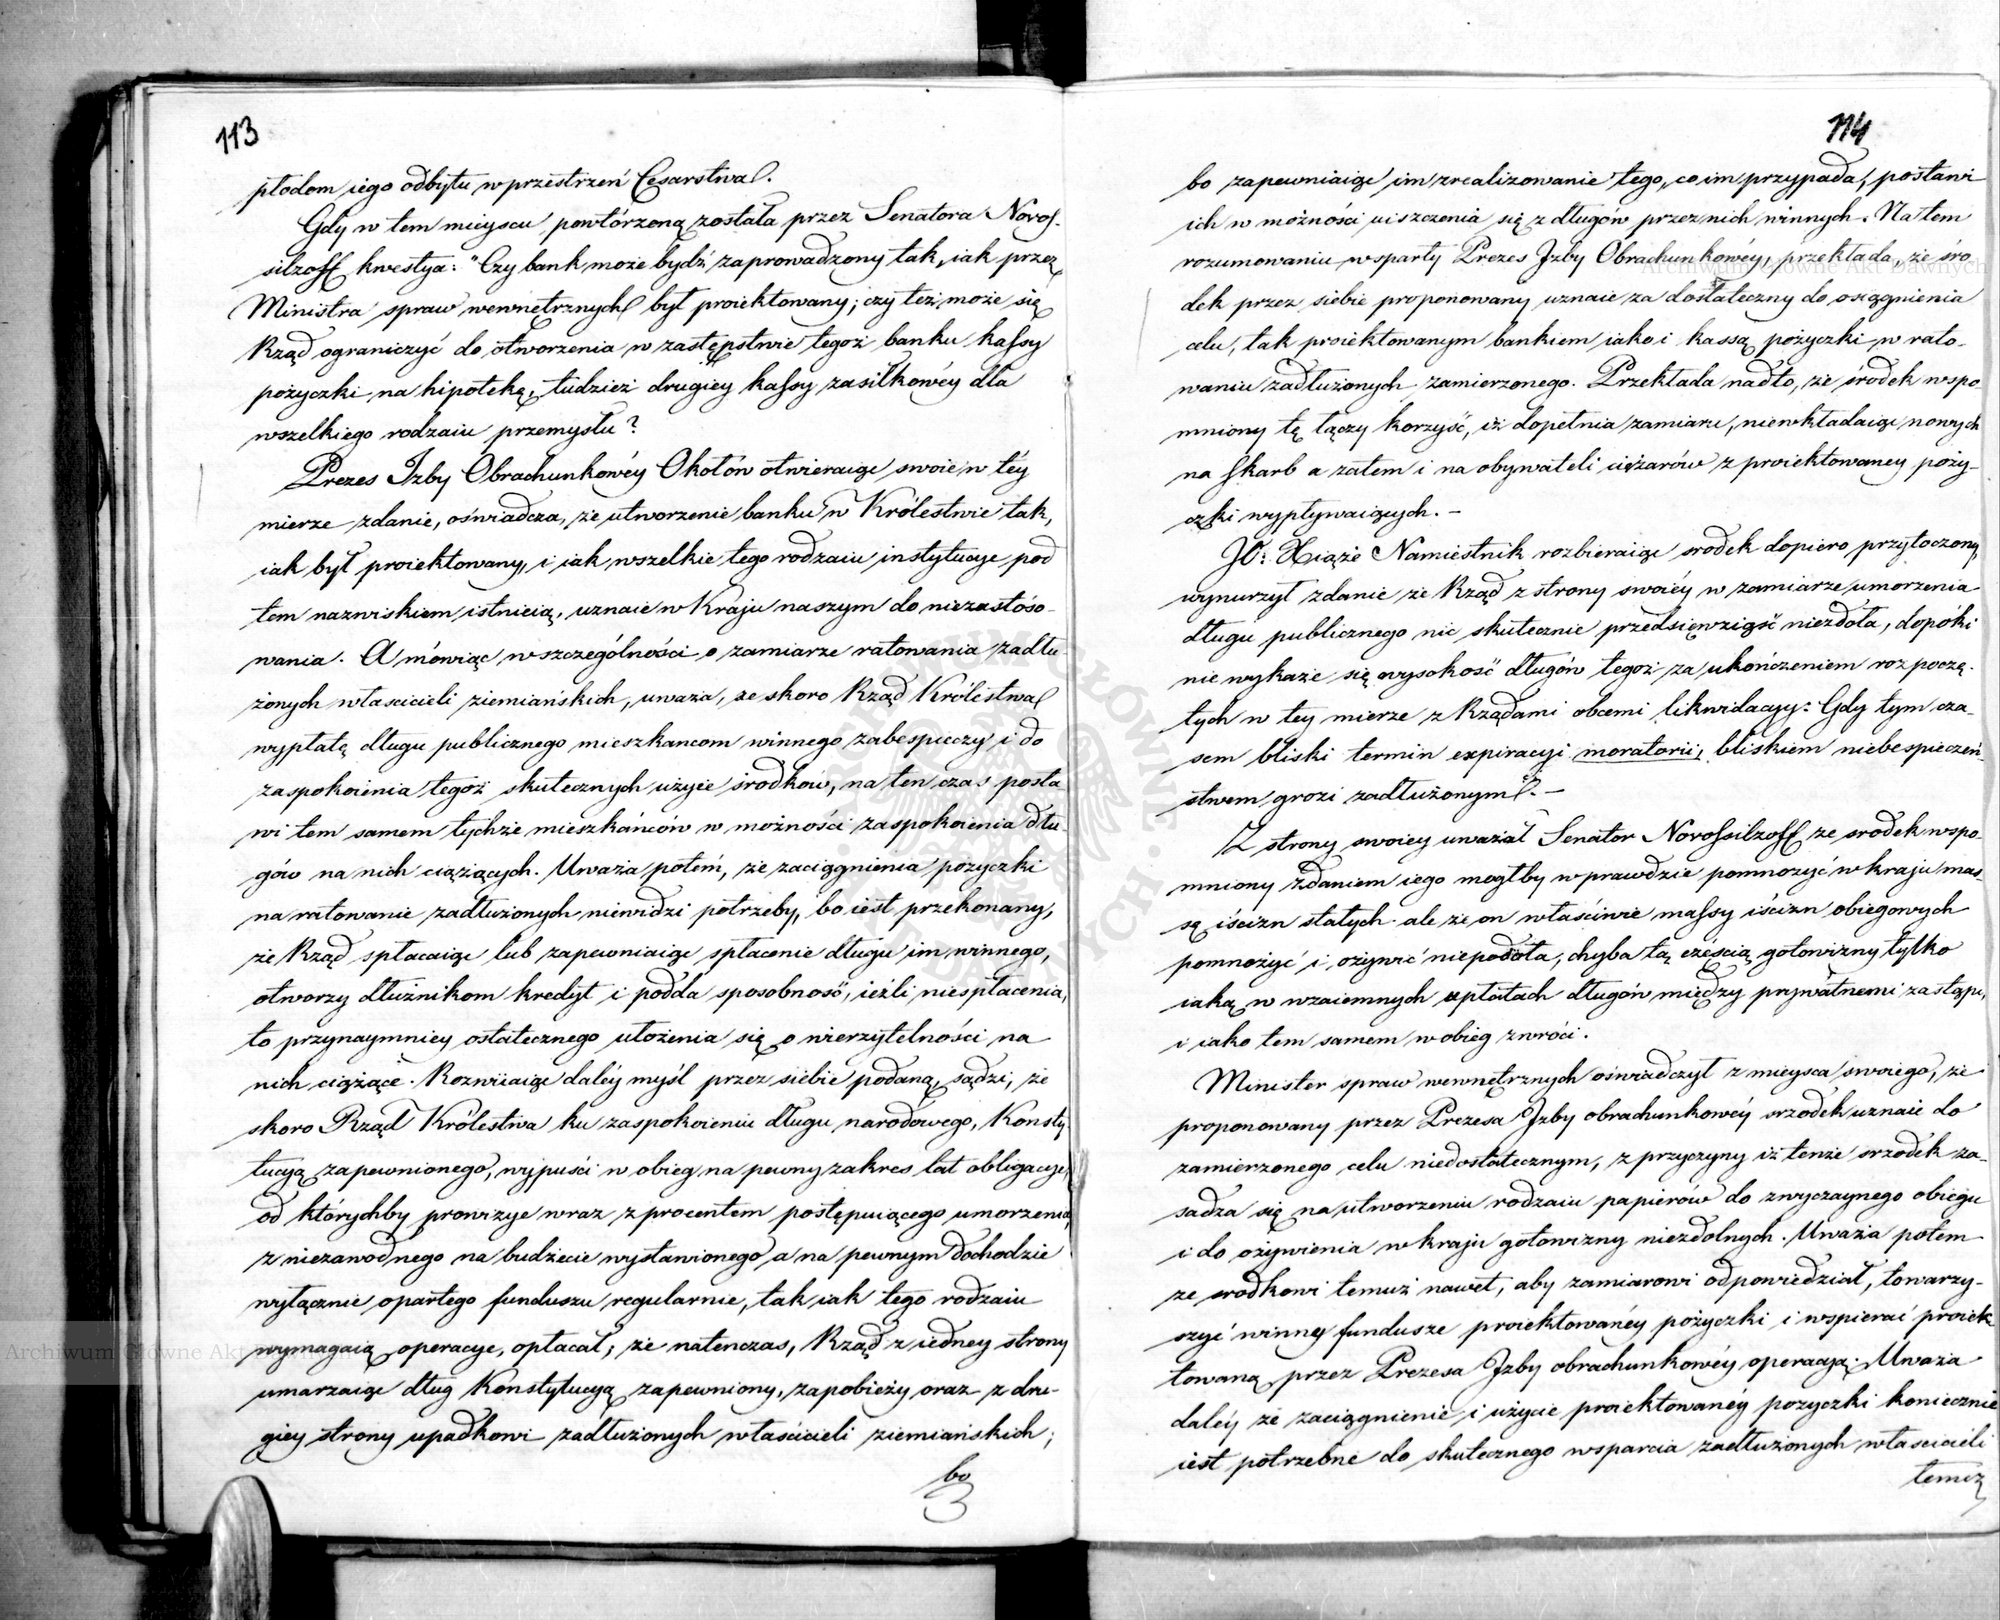 113
płodom iego odbytu w przestrzeń Cesarstwa.
Gdy w tem mieyscu powtórzoną została przez Senatora Novos-
silzoff kwestya: "Czy bank może bydź zaprowadzony tak, iak przez
Ministra spraw wewnętrznych był proiektowany; czy też może się
Rząd ograniczyć do otworzenia w zastępstwie tegoż banku kassy
pożyczki na hipotekę, tudzież drugiey kassy zasiłkowéy dla
wszelkiego rodzaiu przemysłu?
Prezes Izby Obrachunkowéy Okołów otwieraiąc swoie w téy
mierze zdanie, oświadcza, że utworzenie banku w Królestwie tak,
iak był proiektowany, i iak wszelkie tego rodzaiu instytucye pod
tem nazwiskiem istnieią, uznaie w Kraju naszym do niezastóso-
wania. A mówiąc w szczególności o zamiarze ratowania zadłu-
żonych właścicieli ziemiańskich, uważa, że skoro Rząd Królestwa
wypłatę długu publicznego mieszkancom winnego zabespieczy i do
zaspokoienia tegoż skutecznych użyie środków, na ten czas posta
wi tem samem tychże mieszkańców w możności zaspokoienia dłu-
gów na nich ciążących. Uważa potém, że zaciągnienia pożyczki
na ratowanie zadłużonych niewidzi potrzeby, bo iest przekonany,
że Rząd spłacaiąc lub zapewniaiąc spłacenie długu im winnego,
otworzy dłużnikom kredyt i podda sposobność, ieżli niespłacenia,
to przynaymniey ostatecznego ułożenia się o wierzytelności na
nich ciążące. Rozwiiaiąc daléy myśl przez siebie podaną, sądzi, że
skoro Rząd Królestwa ku zaspokoieniu długu narodowego, Konsty-
tucyą zapewnionego, wypuści w obieg na pewny zakres lat obligacye,
od którychby prowizye wraz z procentem postępuiącego umorzenia,
z niezawodnego na budżecie wystawionego a na pewnym dochodzie
wyłącznie opartego funduszu regularnie, tak iak tego rodzaiu
wymagaią operacye, opłacał; że natenczas, Rząd z iedney strony
umarzaiąc dług Konstytucyą zapewniony, zapobieży oraz z dru-
giey strony upadkowi zadłużonych właścicieli ziemiańskich;
bo
114
bo zapewniaiąc im zrealizowanie tego, co im przypada, postawi
ich w możności uiszczenia się z długów przez nich winnych. Na tem
rozumowaniu wsparty Prezes Izby Obrachunkowéy, przekłada, że śro
dek przez siebie proponowany uznaie za dostateczny do osiągnienia
celu, tak proiektowanym bankiem iako i kassą pożyczki w rato-
waniu zadłużonych zamierzonego. Przekłada nadto, że środek wspo
mniony tę łączy korzyść, iż dopełnia zamiaru, niewkładaiąc nowych
na skarb a zatem i na obywateli ciężarów z proiektowaney poży-
czki wypływaiących. –
JO: Xiąże Namiestnik rozbieraiąc srodek dopiero przytoczony,
wynurzył zdanie że Rząd z strony swoiéy w zamiarze umorzenia
długu publicznego nic skutecznie przedsięwziąść niezdoła, dopóki
nie wykaże się wysokość długów tegoż za ukończeniem rozpoczę-
tych w tey mierze z Rządami obcemi likwidacyy: Gdy tym cza-
sem bliski termin expiracyi moratorii, bliskiem niebespieczeń-
stwem grozi zadłużonym. –
Z strony swoiey uważał Senator Novossilzoff że srodek wspo-
mniony zdaniem iego mogłby wprawdzie pomnożyć w kraju mas-
sę iścizn stałych ale że on właściwie massy iścizn obiegowych
pomnożyć i ożywić niepodoła, chyba tą częścią gotowizny tylko
iaką w wzaiemnych upłatach długów między prywatnemi zastąpi,
i iako tem samem w obieg zwróci.
Minister spraw wewnętrznych oświadczył z mieysca swoiego, że
proponowany przez Prezesa Izby obrachunkowéy srzodek uznaie do
zamierzonego celu niedostatecznym, z przyczyny iż tenże srzodek za-
sadza się na utworzeniu rodzaiu papierów do zwyczaynego obiegu
i do ożywienia w kraju gotowizny niezdolnych. Uważa potem
że srodkowi temuż nawet, aby zamiarowi odpowiedział, towarzy-
szyć winny fundusze proiektowanéy pożyczki i wspierać proiek
towaną przez Prezesa Izby obrachunkowéy operacyą. Uważa
daléy że zaciągnienie i użycie proiektowanéy pożyczki koniecznie
iest potrzebne do skutecznego wsparcia zadłużonych właścicieli
temiż
Archiwum Główne Akt Dawnych